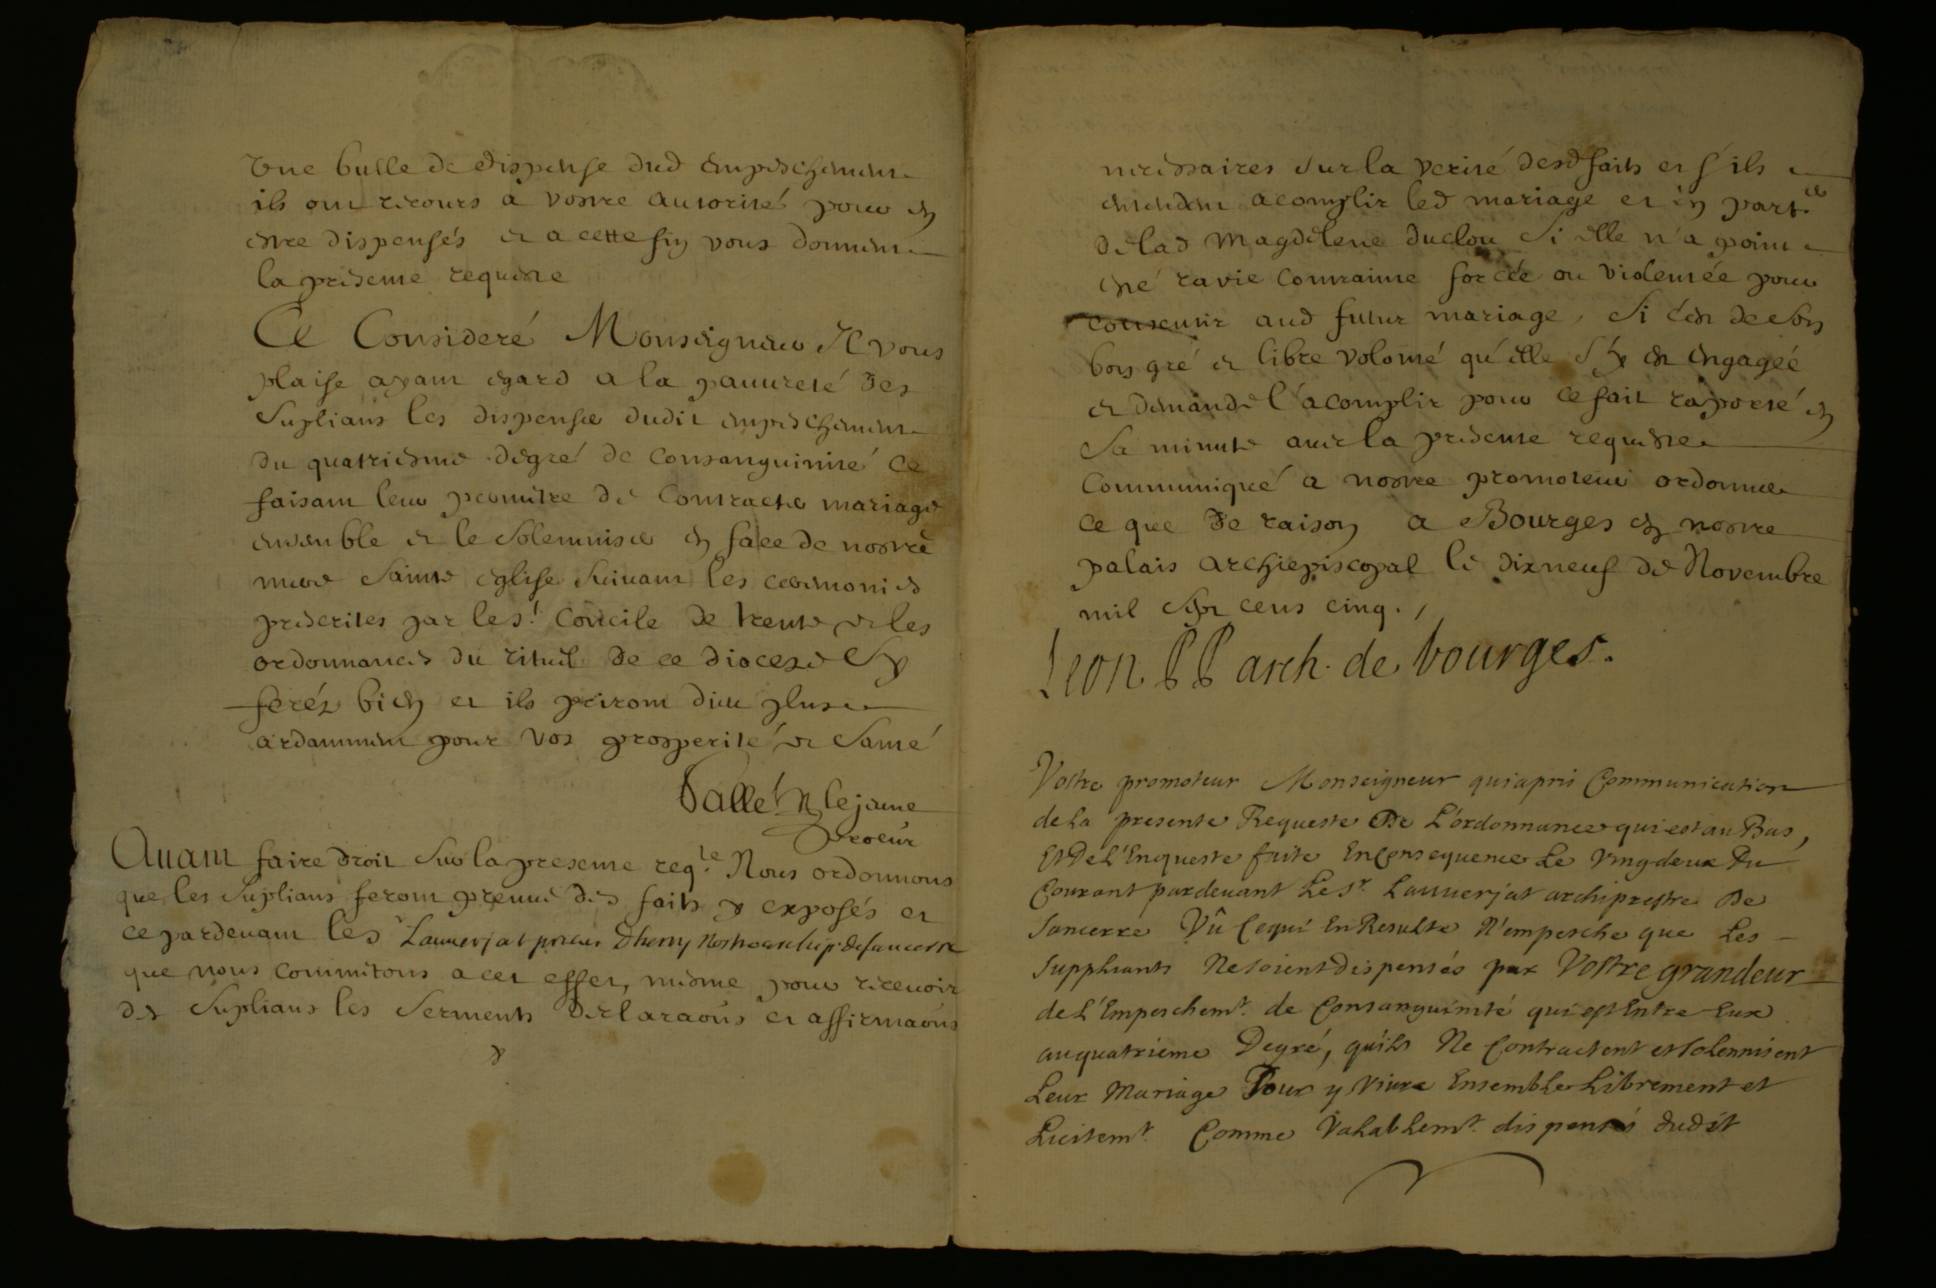 une bulle de dispense dud empeschement
ils ont recours a vostre autorité pour en
estre dispensés et a cette fin vous donnent
la presente requeste
Ce Consideré Monseigneur Il vous
plaise ayant egard a la pauureté des
Suplians les dispenser dudit empeschement
du quatriesme degré de consanguinité ce
faisant leur permettre de Contracter mariage
ensemble et le Solemniser en face de nostre
mere Sainte eglise Suiuant les ceremonies
prescrites par le st Concile de trente et les
ordonnances du rituel de ce dioceze Sy
ferés bien et ils priront dieu plus
ardamment pour vos prosperité et Santé
Vallet lejeune
Procur
Auant faire droit Sur la presente reqte. Nous ordonnons
que les Suplians feront preuue des faits y exposés et
ce pardeuant le Sr Lauuerjat de Sancerre
que nous commitons a cet effet, mesme pour receuoir
des Suplians les Serments declaraons et affirmaons
necessaires Sur la verité desd faits et s'ils
entendent acomplir led mariage et en part.er
de lad Magdelene duclou Si elle n'a point
esté ravie contrainte forcée ou violentée pour
consentir aud futur mariage, Si c'est de Son
bon gré et libre volonté qu'elle S'y est engageé
et demande l'acomplir pour ce fait raporté en
Sa minute auec la presente requeste
Communiqué a nostre promoteur ordonner
ce que de raison a Bourges en nostre
palais archiepiscopal le dixneuf de Novembre
mil Sept cens cinq.
Leon PP arch. de bourges.
Vostre promoteur Monseigneur qui a pris Communication
de la presente Requeste De L'ordonnance qui est au Bas,
Et De L'Enqueste faite En Consequence Le Vingdeux Du
Courant pardeuant Le Sr. Lauuerjat archiprestre De
Sancerre Vû Ce qui En Resulte N'empesche que Les
Suppliants Ne soient dispensés par Vostre grandeur
de L'Empeschemt. de Consanguinité qui est Entre Eux
au quatrieme Degré, qu'ils Ne Contractent et solennisent
Leur Mariage Pour y Viure Ensemble Librement et
Licitemt. Comme Valablemt. dispensés dudit